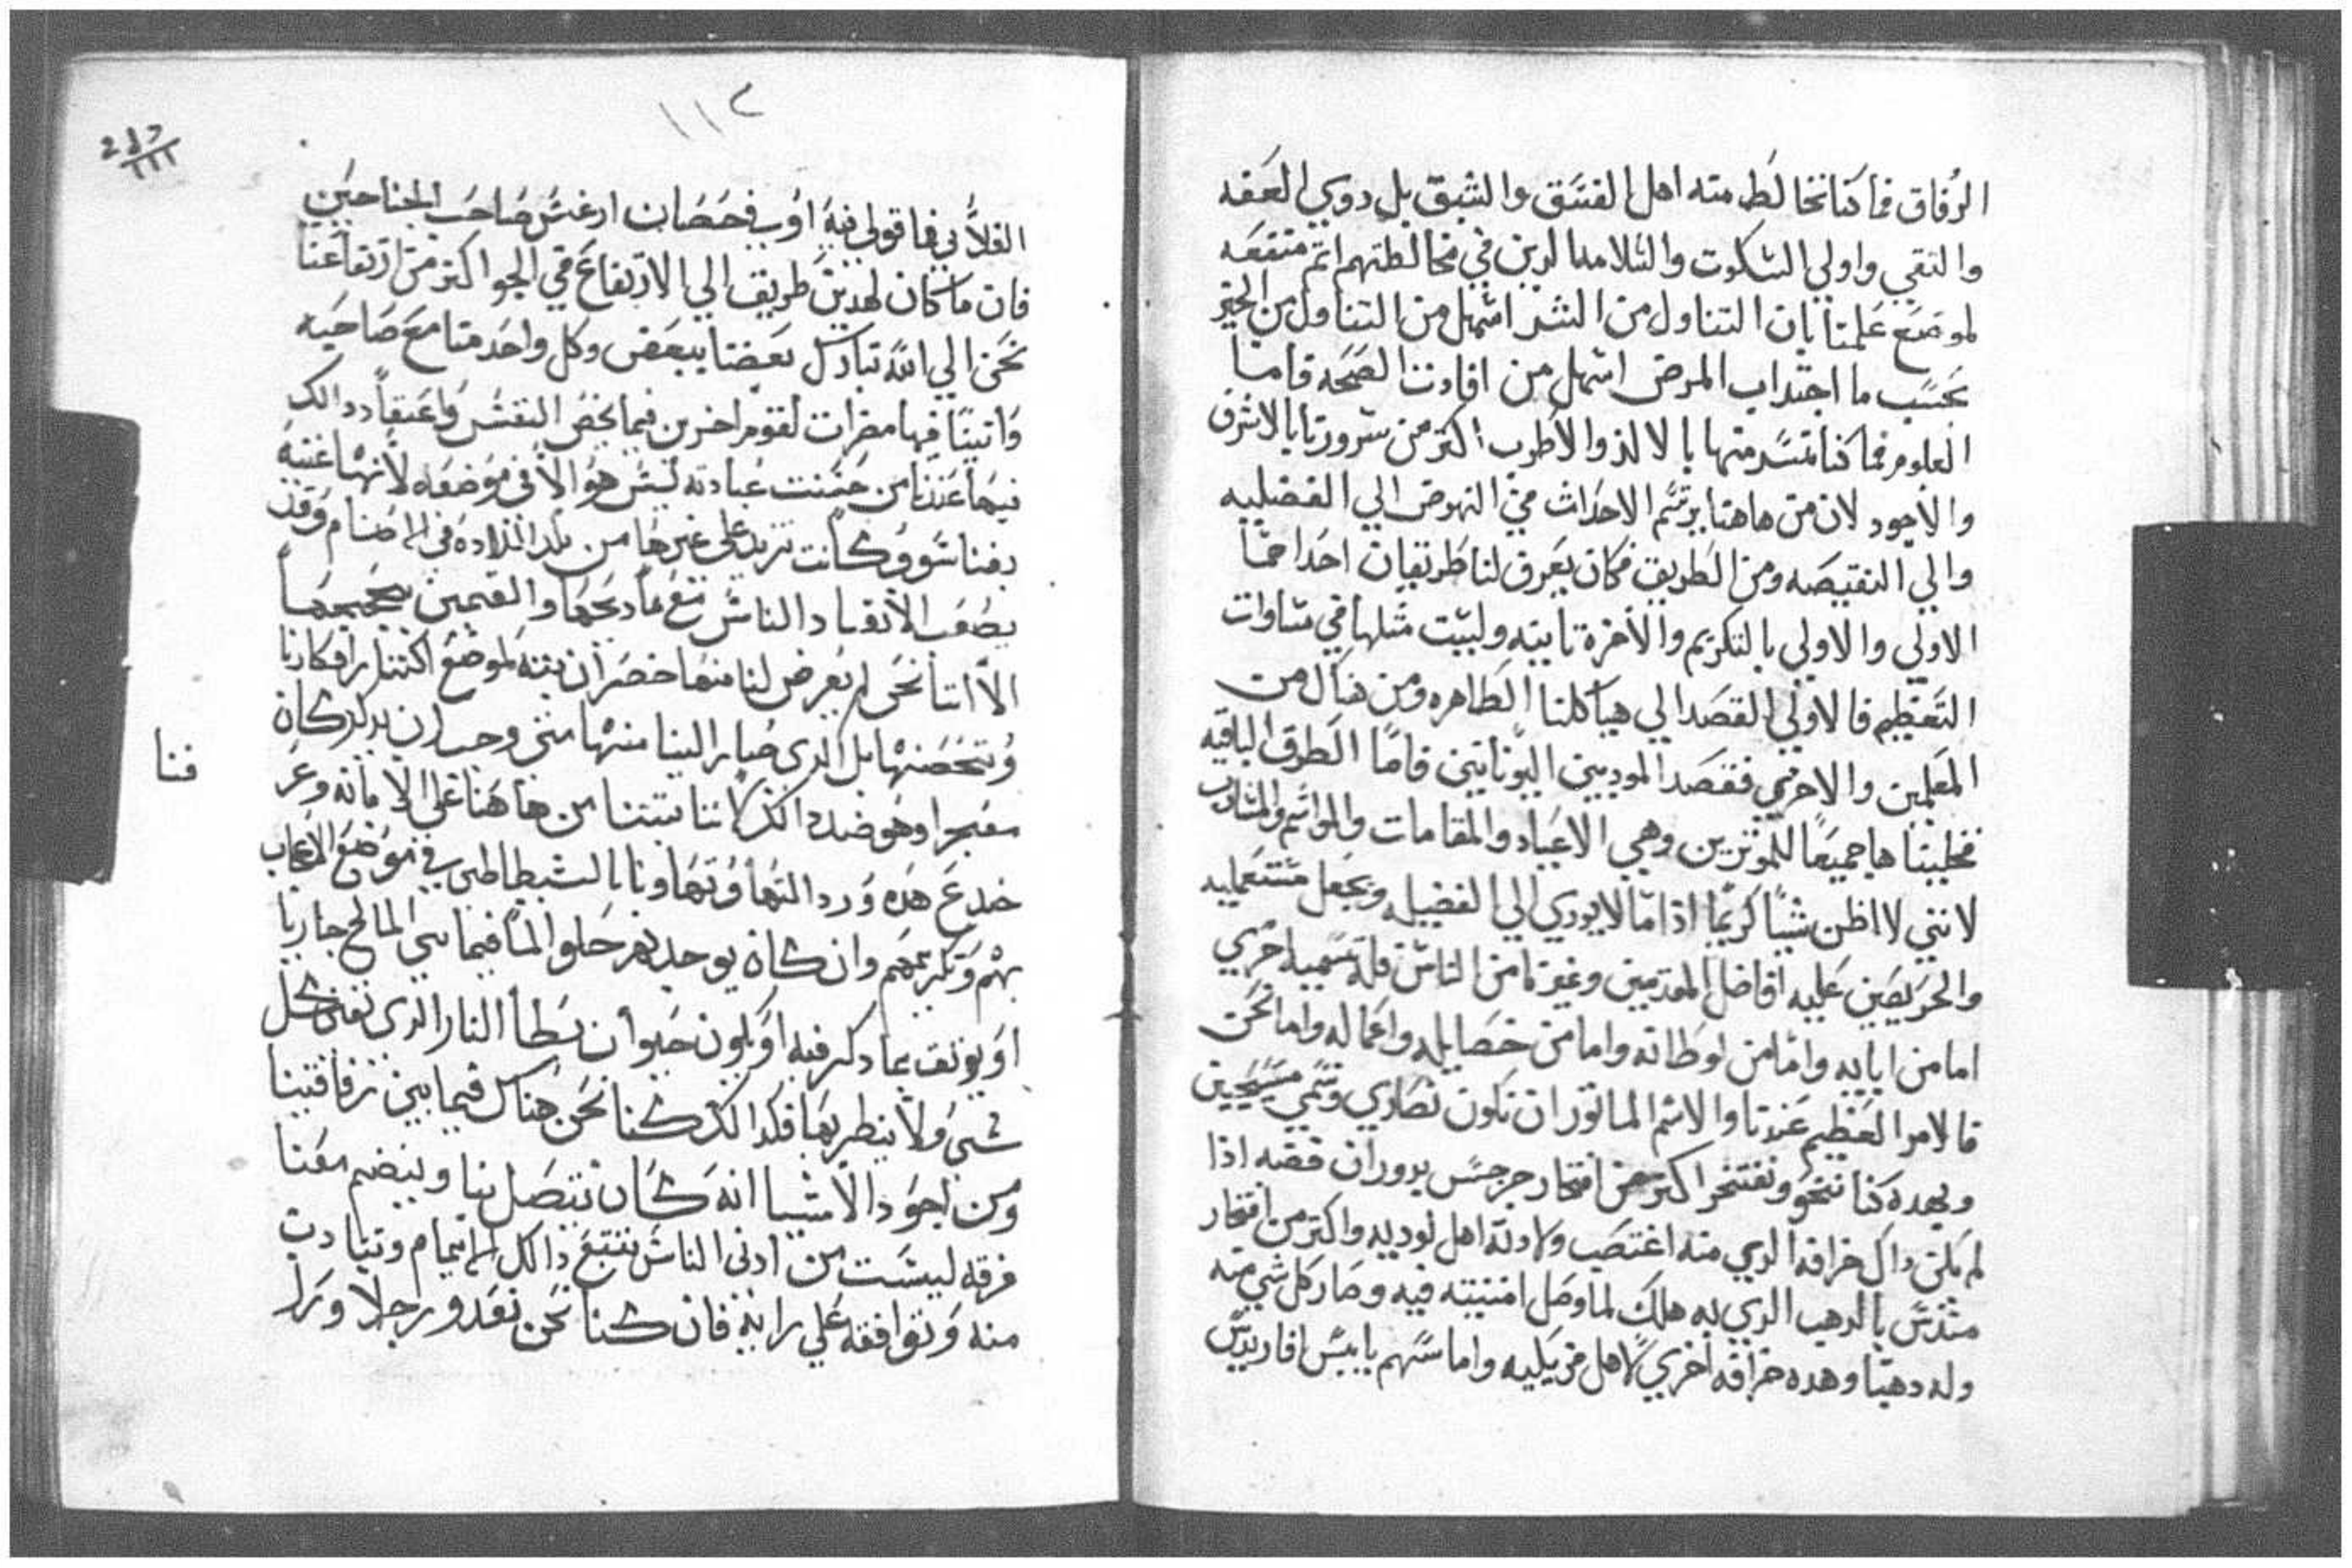 الرفاق فما كنا نخالط منه اهل الفسق والشبق بل دوي العفه
والنقي واولي السكوت والتلاميد الدين في مخالطتهم اتم منفعه
لموضع علمنا بان التناول من الشر اسهل من التناول من الخير
بحسب ما اجتداب المرض اسهل من افادتنا الصحه فاما
العلوم فما كنا نسر منها بالالذ والاطرب اكتر من سرورنا بالاشرف
والاجود لان من هاهنا يرتسم الاحداث في النهوض الي الفضليه
والي النقيصه ومن الطريق فكان يعرف لنا طريقان احداهما
الاولي والاولي بالتكريم والاخرة تانيته وليست متلها في مساوات
التعظيم فالاولي القصد الي هياكلنا الطاهره ومن هناك من
المعلمين والاخري فقصد الموديين اليونانيين فاما الطرق الباقيه
فخليناها جميعا للموترين وهي الاعياد والمقامات والمواسم والمشارب
لانني لا اظن شيبا كريما اذا ما لا يودي الي الفضيله ويجعل مستعمليه
والحريصين عليه افاضل المقدمين وغيرنا من الناس فله تسميه اخري
اما من ابايه واما من اوطانه واما من خصايله واعماله واما نحن
فالامر العظيم عندنا والاسم الماتور ان نكون نصاري ونسمي مسيحيين
وبهده كنا ننخو ونفتخر اكتر من افتخار جرجس بدوران فصه اذا
لم يكن داك خرافه الدي منه اغتصب ولادته اهل لوديه واكتر من افتخار
ميدس بالدهب الدي به هلك لما وصل امنيته فيه وصار كل شي منه
وله دهبا وهده خرافه اخري لاهل فريليه واما سهم بابيس افاريدس
١١٢
الفلاني فما قولي فيه او في حصان ارغس صاحب الجناحين
فان ما كان لهدين طريق الي الارتفاع في الجو اكتر من ارتفاعنا
نحن الي الله تبارك بعضنا ببعض وكل واحد منا مع صاحبه
واتينا فيها مضرات لقوم اخرين فيما يخص النفس واعتقاد دالك
فيها عندنا من حسنت عبادته ليس هو الا في موضعه لانها غنيه
بغنا سوو وكانت تزيد علي غيرها من بلد البلاده في الاصنام وقد
يصعب الانقياد الناس مع مادحها والقيمين بجميعها
الا اننا نحن لم يعرض لنا منها خضران بته لموضع اكتنار افكارنا
وتحصنها بل الدي صار الينا منها متي وجب ان يدكر كان
معجزا وهو ضد دالك لاننا تبتنا من هاهنا علي الامانه وعر
خدع هده ورد التها وتهاونا بالشيطاطين في موضع الاعجاب
بهم وتكريمهم وان كان يوجد نهر حلو الما فيما بين المالح جاريا
او يوتف بما دكر فيه او يكون حيوان يطا النار الدي تفني كل
شي ولا ينطر بها فكدالك كنا نحن هناك فيما بين رفاقتينا
ومن اجود الاشيا انه كان يتصل بنا وينضم معنا
فرقه ليست من ادني الناس تتبع دالك الاتمام وتتادب
منه وتوافقه علي رايه فان كنا نحن نغدو رجلا ورا
فنا